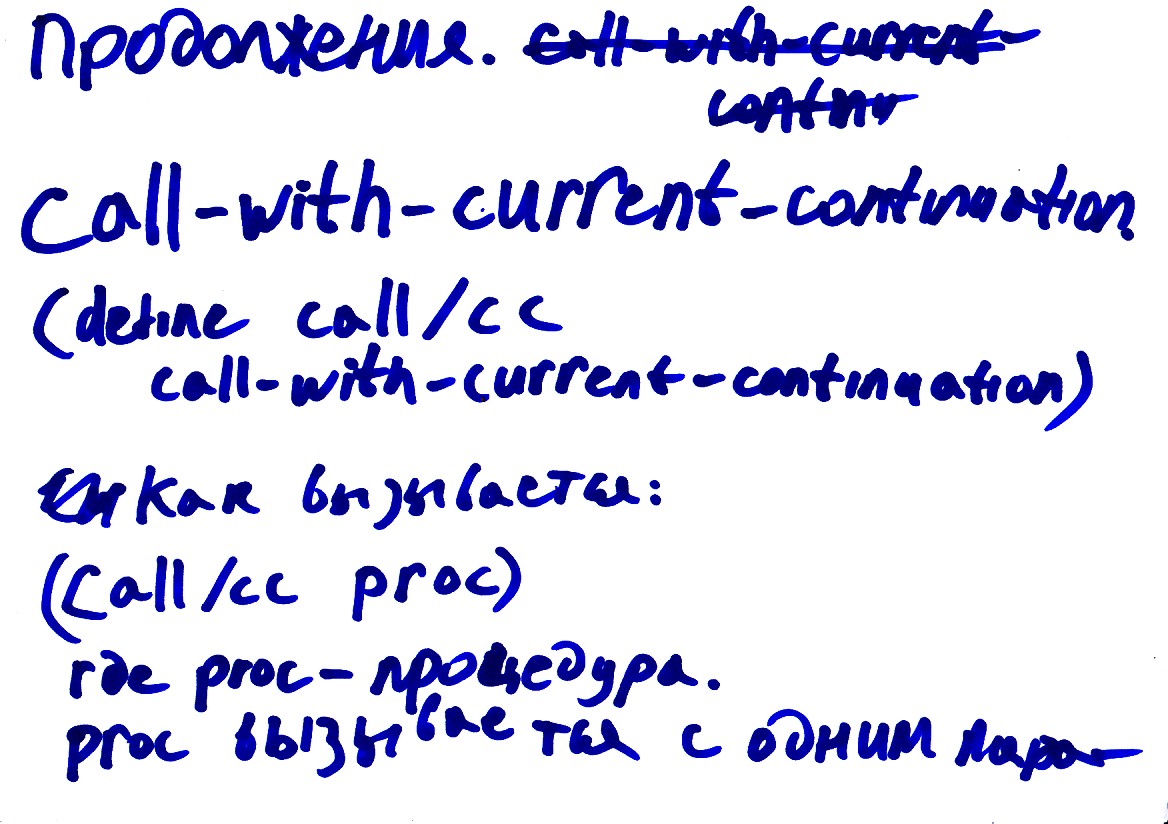 Продолжения. call-with-current-
continu
call-with-current-continuation
(define call/cc
call-with-current-continuation)
Как вызывается:
(call/cc proc)
где proc – процедура.
proc вызывается с одним пара-